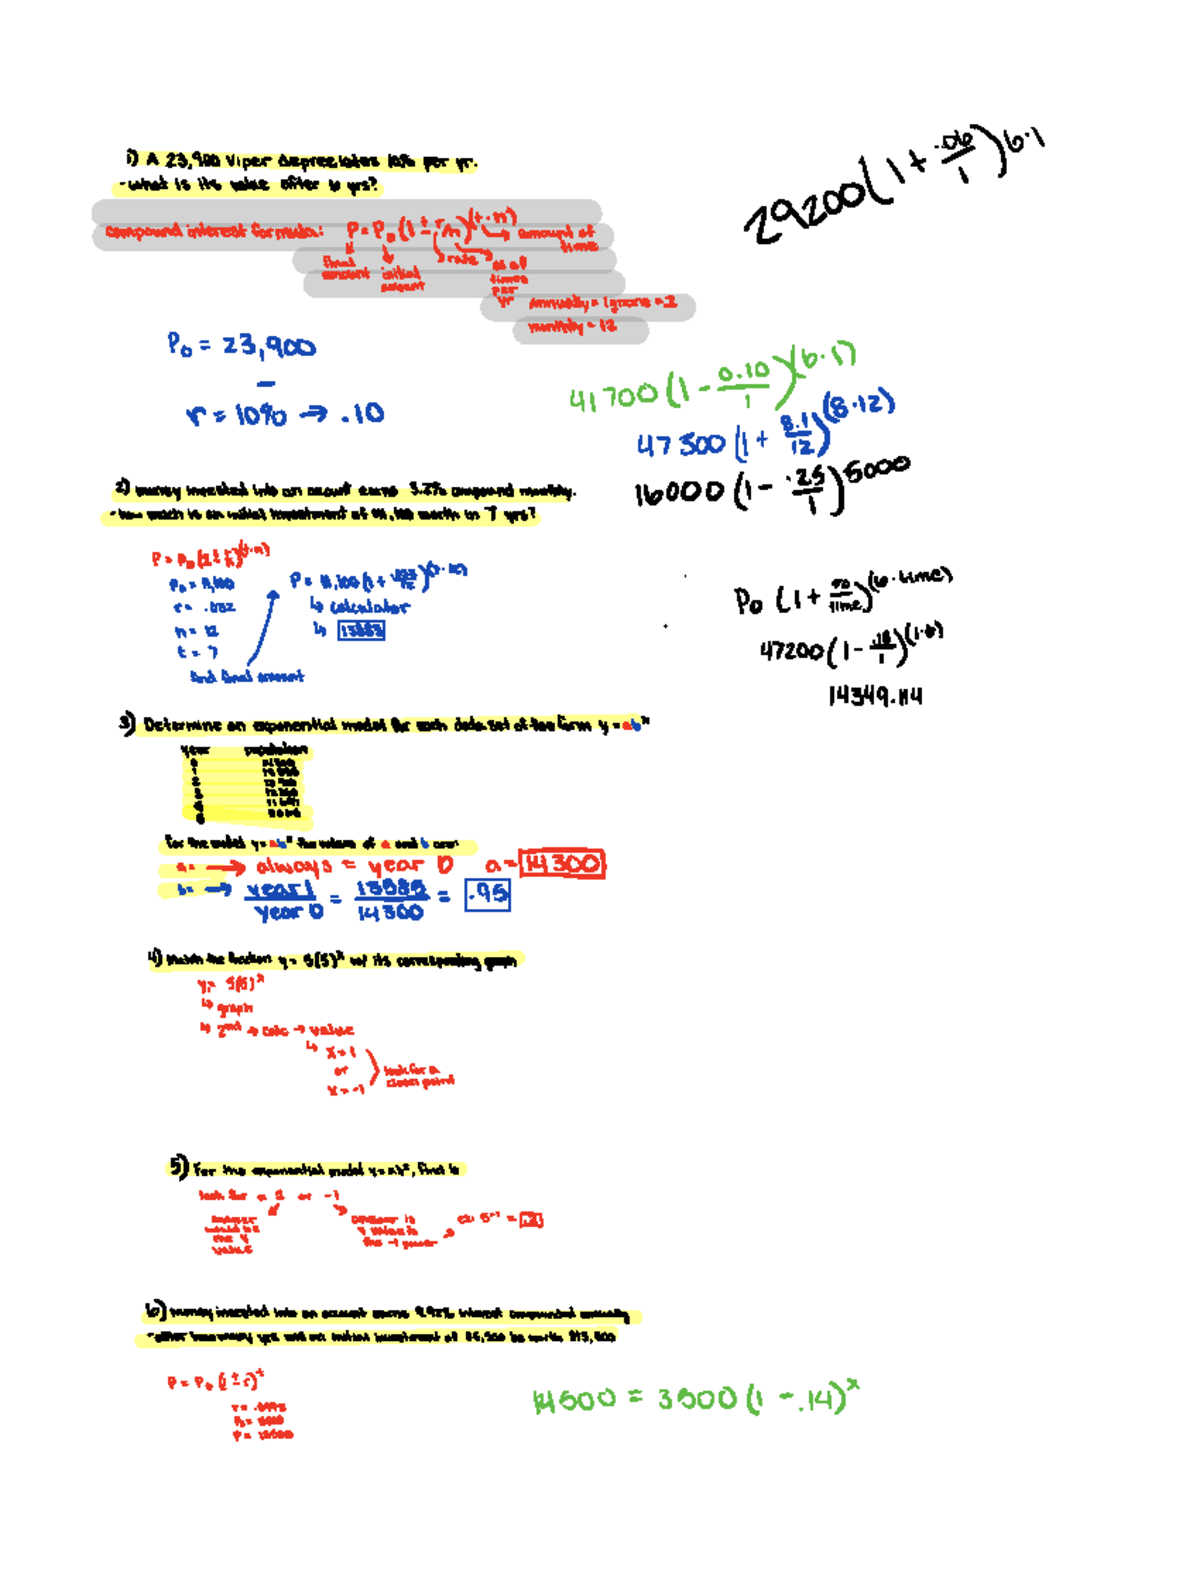 1) A 23,900 Viper depreciates 10% per yr.
- What is its value after 6 yrs?
29200(1 + .06/1)^6·1
compound interest formula: P = P₀ (1 ± r/n)^(t·n) → amount of time
final amount
initial amount
rate
# of times per yr
annually = ignore = 1
monthly = 12
P₀ = 23,900
–
r = 10% → .10
41700(1 - 0.10/1)^(6·1)
47300(1 + 8.1/12)^(8·12)
16000(1 - .25/1)^5000
2) money invested into an account earns 3.2% compound monthly.
- how much is an initial investment of worth in 7 yrs?
P = P₀(1 ± r/n)^(t·n)
r = .032
n = 12
t = 7
find final amount
↳ calculator
P₀ (1 + /time)^(6·time)
47200(1 - .18/1)^(1·6)
14349.114
3) Determine an exponential model for each data set of the form y = ab^x
year population
For the model y = ab^x the values of a and b are:
a = → always = year 0 a = 14300
b = → year 1/year 0 = 13585/14300 = .95
4) Match the function y = 5(5)^x w/ its corresponding graph
y = 5(5)^x
↳ graph
↳ 2nd → calc → value
↳ x = 1
or
x = -1
look for a close point
5) For the exponential model y = ab^x, find b
look for a 1 or -1
answer would be the y value
answer is y value to the -1 power
ex: 5^-1 = .2
6) money invested into an account earns 9.92% interest compounded annually
- after how many yrs will an initial investment of be worth
P = P₀ (1 ± r)^t
14500 = 3500(1 - .14)^x